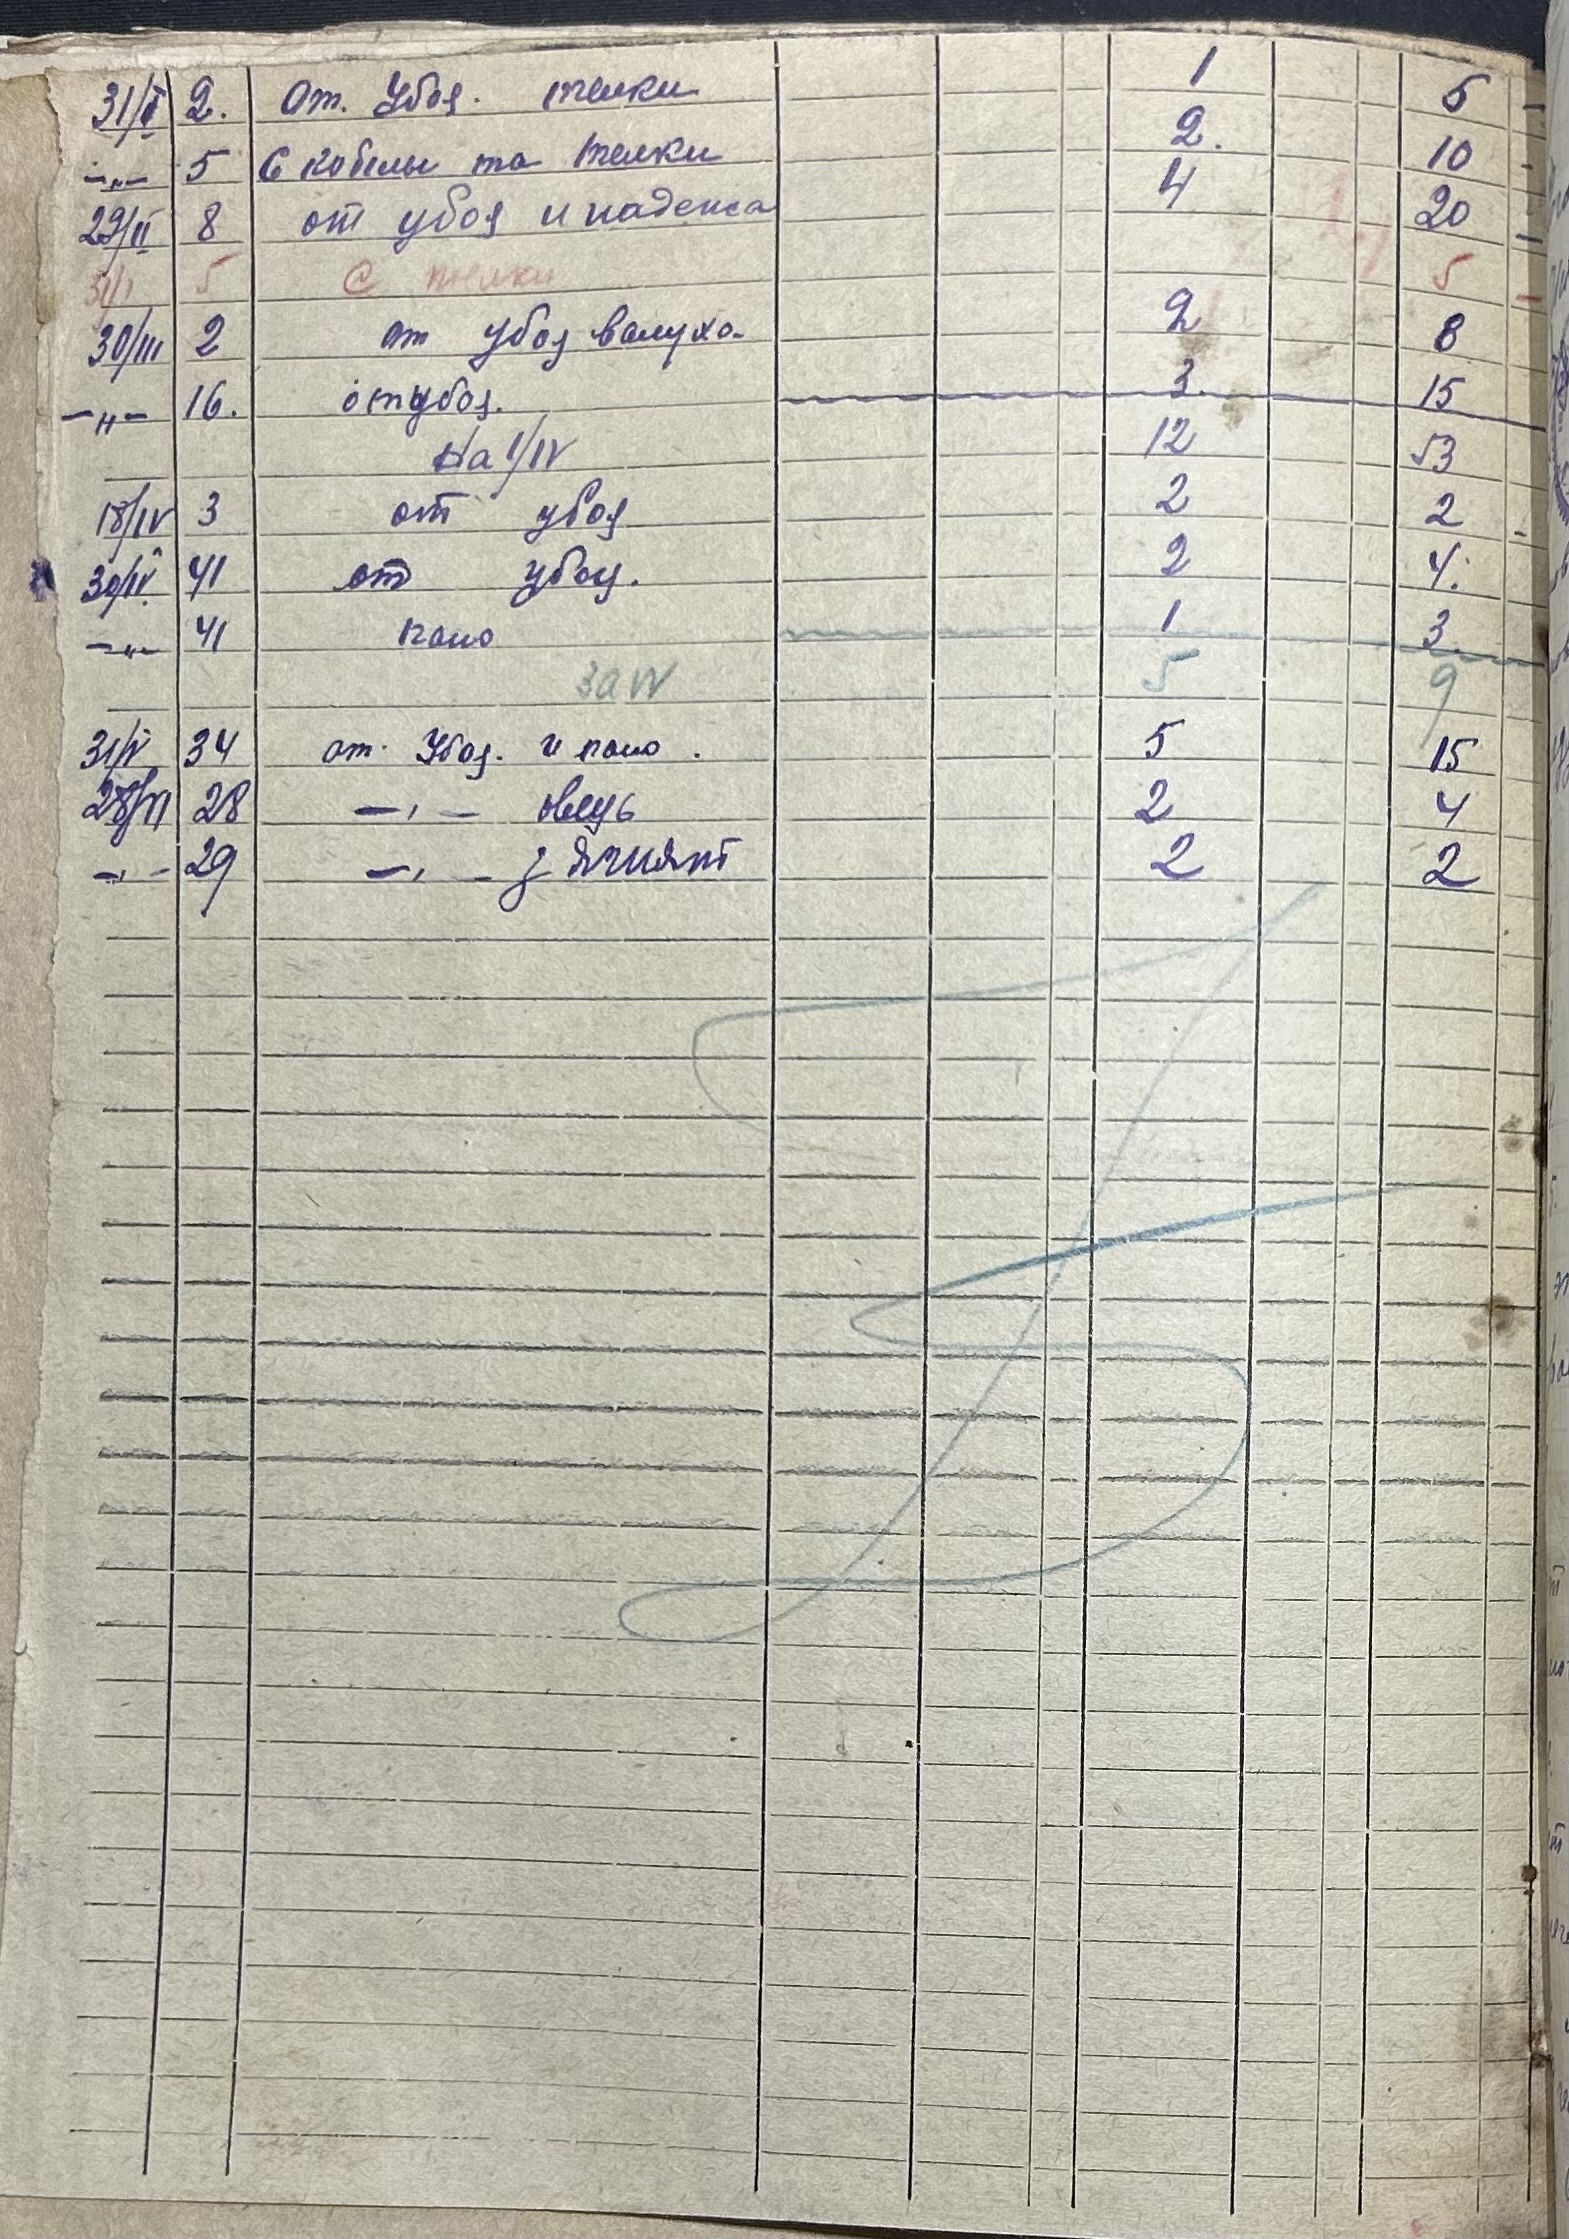 31/I 2. От. Убоя. телки 1 5
-„- 5 С кобилы та телки 2. 10
29/II 8 от убоя и падежа 4 20
31/I 5 С телки 1 5
30/III 2 от убоя валуха 2 8
-„- 16. от убоя. 3. 15
На 1/IV 12 53
18/IV 3 от убоя 2 2
30/IV 41 от убоя. 2 4.
-„- 41 пало 1 3
За IV 5 9
31/V 34 от. Убоя. и пало. 5 15
28/VI 28 -„- овець 2 4
-„- 29 -„- з ягнят 2 2